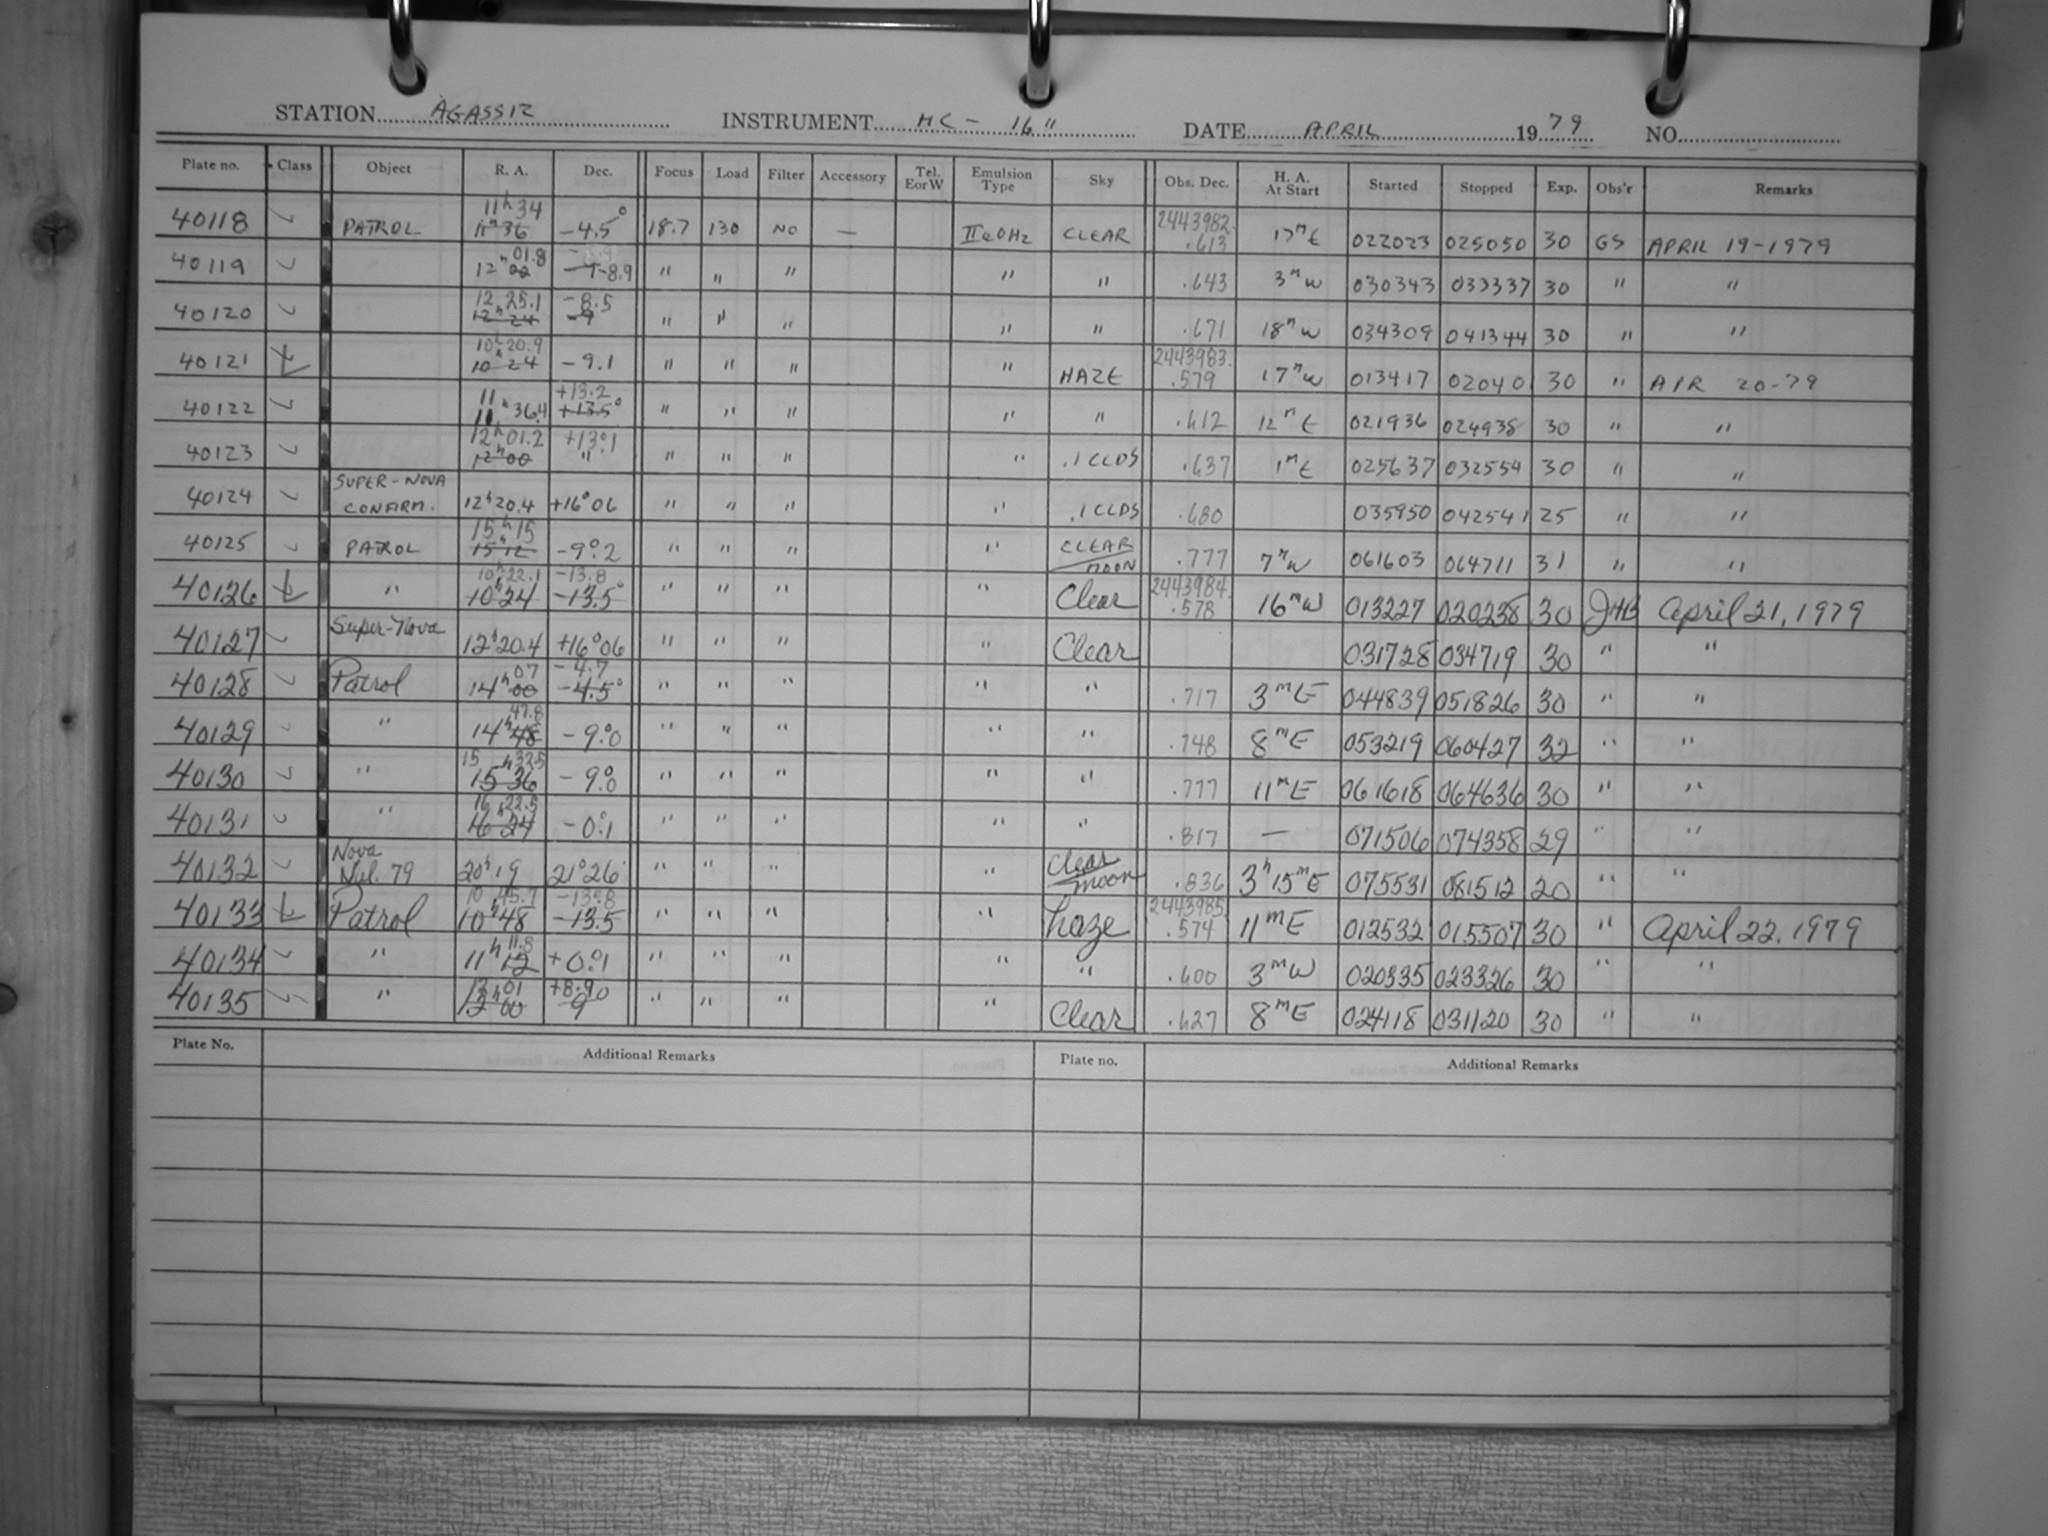 STATION AGASSIZ INSTRUMENT MC - 16" DATE APRIL 19 79 NO.
Plate no. Class Object R. A. Dec. Focus Load Filter Accessory Tel. E or W Emulsion Type Sky Obs. Dec. H. A. At Start Started Stopped Exp. Obs'r Remarks
40118 ✓ PATROL 11h 34 11h 36 -4.5° 18.7 130 NO — IIaOHz CLEAR 2443982. .613 17m E 022023 025050 30 GS APRIL 19-1979
40119 ✓ 12h 01.8 02 -8.9 " " " " " .643 3m W 030343 033337 30 " "
40120 ✓ 12 25.1 12h 24 -8.5 -9 " " " " " .671 18m W 034309 041344 30 " "
40121 10h 20.9 10h 24 -9.1 " " " " HAZE 2443983. .579 17m W 013417 02040 30 " A/R 20-79
40122 ✓ 11 11h 36.4 +13.2 +13.5° " " " " " .612 12m E 021936 024938 30 " "
40123 ✓ 12h 01.2 12h 00 +13.1 " " " " " .1 CLDS .637 1m E 025637 032554 30 " "
40124 ✓ SUPER-NOVA CONFIRM. 12h 20.4 +16° 06 " " " " .1 CLDS .680 035950 042541 25 " "
40125 ✓ PATROL 15h 15 15h 12 -9°.2 " " " " CLEAR MOON .777 7m W 061603 064711 31 " "
40126 " 10h 22.1 10h 24 -13.8 -13.5° " " " " Clear 2443984. .578 16m W 013227 020238 30 JHB April 21, 1979
40127 ✓ Super-Nova 12h 20.4 +16° 06 " " " " Clear 031728 034719 30 " "
40128 ✓ Patrol 07 14h 00 -4.7 -4.5° " " " " " .717 3m E 044839 051826 30 " "
40129 ✓ " 47.8 14h 48 -9.0 " " " " " .748 8m E 053219 060427 32 " "
40130 ✓ " 15 32.5 15h 36 -9.0 " " " " " .777 11m E 061618 064636 30 " "
40131 ✓ " 16 22.5 16h 24 -0.1 " " " " " .817 — 071506 074358 29 " "
40132 ✓ Nova Vul. 79 20h 19 21° 26 " " " " Clear moon .836 3h 15m E 075531 081512 20 " "
40133 Patrol 10 45.7 10h 48 -13.8 -13.5 " " " " haze 2443985. .574 11m E 012532 015507 30 " April 22, 1979
40134 " 11.8 11h 12 +0.1 " " " " " .600 3m W 020335 023326 30 " "
40135 ✓ " 12h 01 12h 00 +8.9 9 " " " " Clear .627 8m E 024118 031120 30 " "
Plate No. Additional Remarks Plate no. Additional Remarks